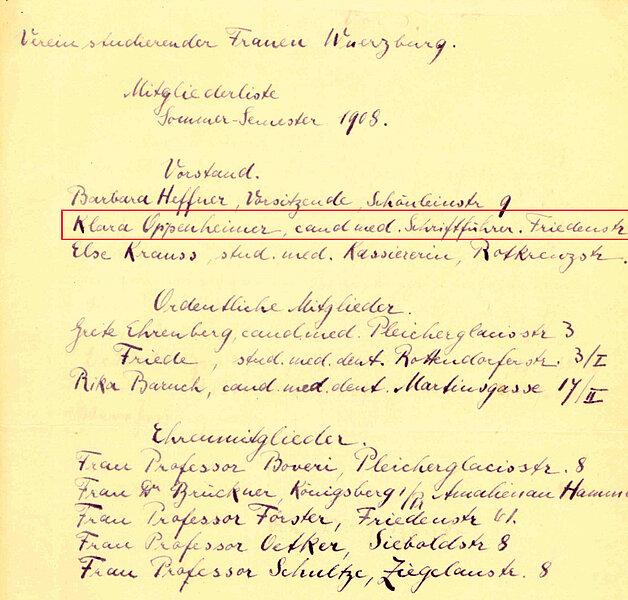 Verein studierender Frauen Wuerzburg.
Mitgliederliste
Sommer-Semester 1908.
Vorstand.
Barbara Heffner, Vorsitzende, Schönleinstr 9
Klara Oppenheimer, cand med. Schriftführer. Friedenstr
Else Krauss, stud. med. Kassiererin, Rotkreuzstr.
Ordentliche Mitglieder.
Grete Ehrenberg, cand. med. Pleicherglacisstr 3
Friede, stud. med. dent. Rottendorferstr. 3/I
Rika Baruch, cand. med. dent. Martinsgasse 17/II
Ehrenmitglieder.
Frau Professor Boveri, Pleicherglacisstr. 8
Frau Dr Brückner, Königsberg i/P Amalienau Hamm
Frau Professor Förster, Friedenstr 61.
Frau Professor Oetker, Sieboldstr 8
Frau Professor Schultze, Ziegelaustr. 8